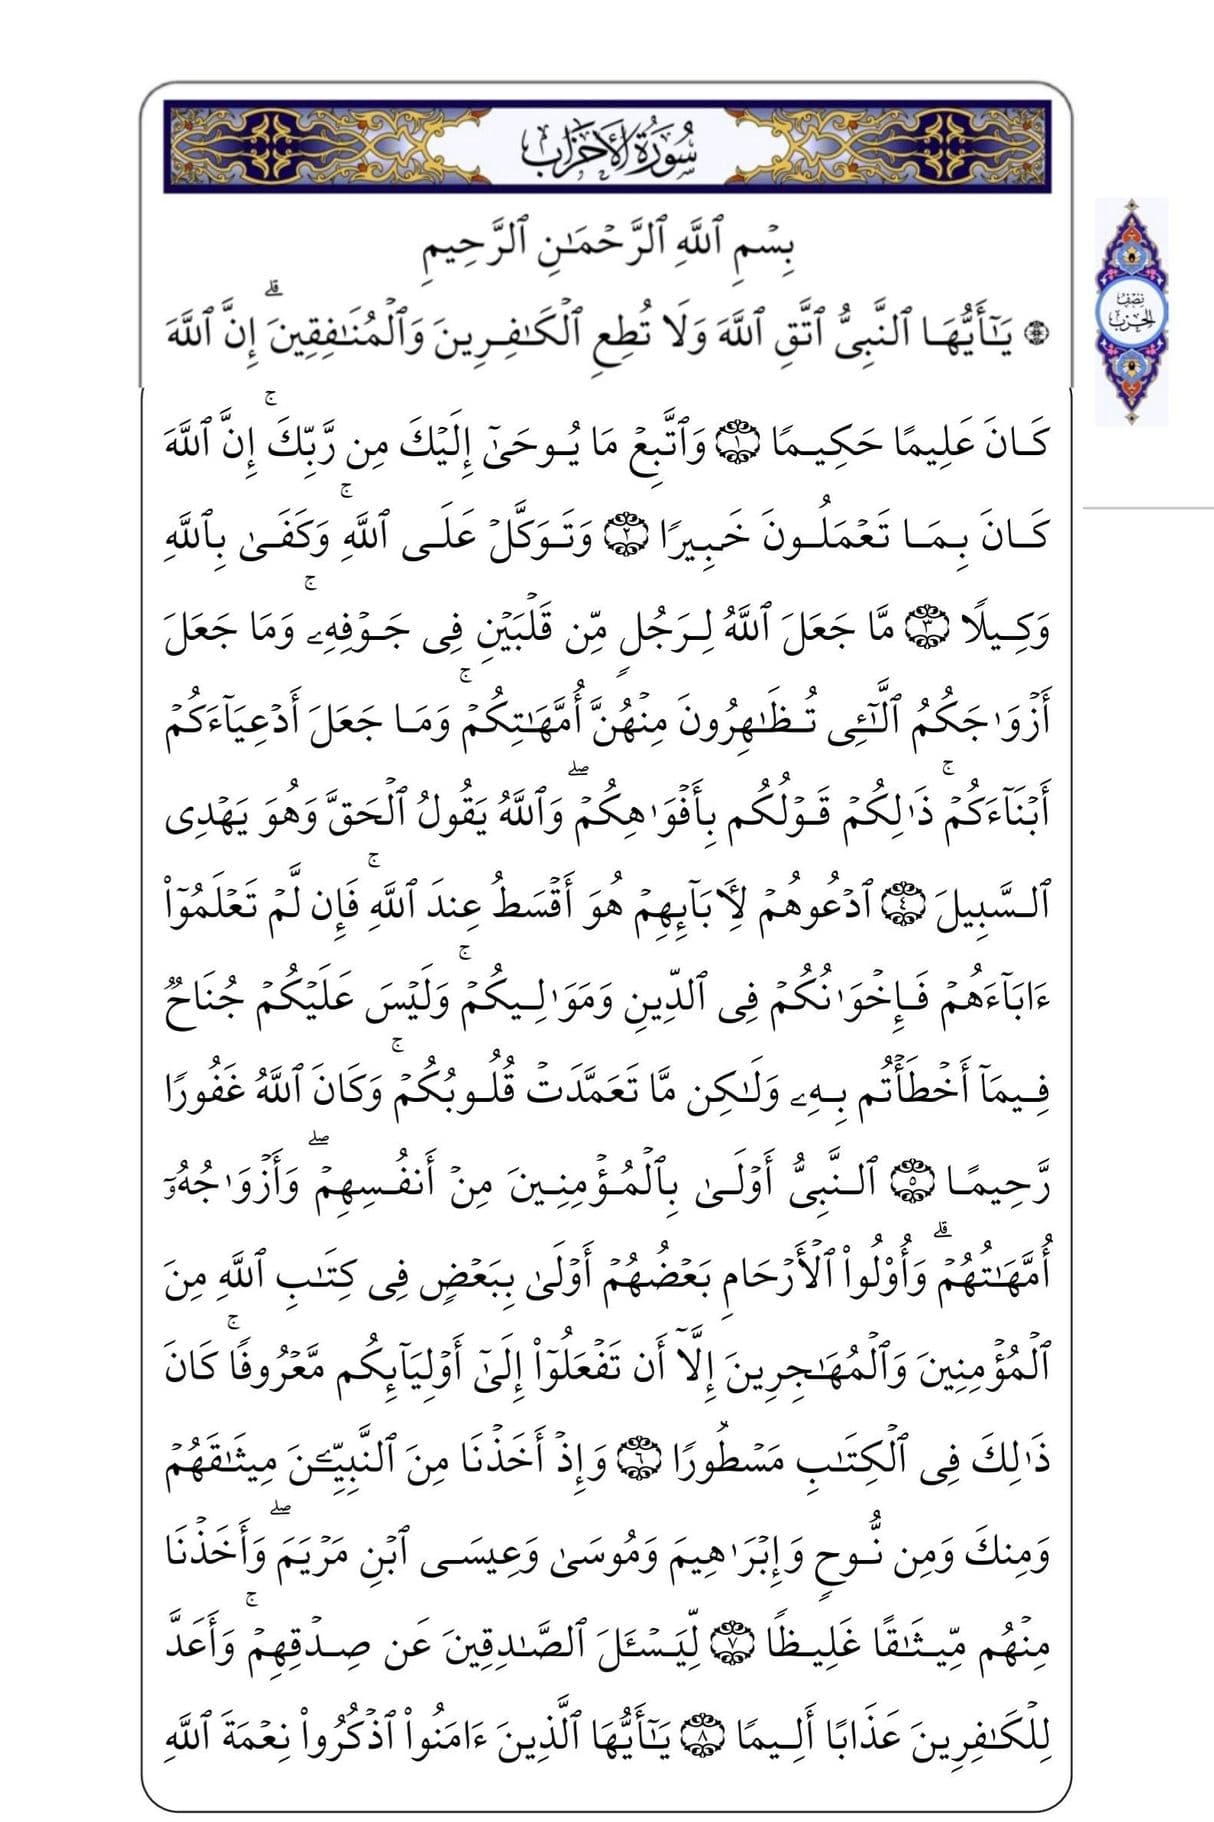 سُورَةُ الأَحْزَابِ
بِسْمِ ٱللَّهِ ٱلرَّحْمَـٰنِ ٱلرَّحِيمِ
۞ يَـٰٓأَيُّهَا ٱلنَّبِىُّ ٱتَّقِ ٱللَّهَ وَلَا تُطِعِ ٱلْكَـٰفِرِينَ وَٱلْمُنَـٰفِقِينَ ۗ إِنَّ ٱللَّهَ
نِصْفُ
الحِزْب
كَانَ عَلِيمًا حَكِيمًا ۝١ وَٱتَّبِعْ مَا يُوحَىٰٓ إِلَيْكَ مِن رَّبِّكَ ۚ إِنَّ ٱللَّهَ
كَانَ بِمَا تَعْمَلُونَ خَبِيرًا ۝٢ وَتَوَكَّلْ عَلَى ٱللَّهِ ۚ وَكَفَىٰ بِٱللَّهِ
وَكِيلًا ۝٣ مَّا جَعَلَ ٱللَّهُ لِرَجُلٍ مِّن قَلْبَيْنِ فِى جَوْفِهِۦ ۚ وَمَا جَعَلَ
أَزْوَٰجَكُمُ ٱلَّـٰٓـِٔى تُظَـٰهِرُونَ مِنْهُنَّ أُمَّهَـٰتِكُمْ ۚ وَمَا جَعَلَ أَدْعِيَآءَكُمْ
أَبْنَآءَكُمْ ۚ ذَٰلِكُمْ قَوْلُكُم بِأَفْوَٰهِكُمْ ۖ وَٱللَّهُ يَقُولُ ٱلْحَقَّ وَهُوَ يَهْدِى
ٱلسَّبِيلَ ۝٤ ٱدْعُوهُمْ لِـَٔابَآئِهِمْ هُوَ أَقْسَطُ عِندَ ٱللَّهِ ۚ فَإِن لَّمْ تَعْلَمُوٓا۟
ءَابَآءَهُمْ فَإِخْوَٰنُكُمْ فِى ٱلدِّينِ وَمَوَٰلِيكُمْ ۚ وَلَيْسَ عَلَيْكُمْ جُنَاحٌ
فِيمَآ أَخْطَأْتُم بِهِۦ وَلَـٰكِن مَّا تَعَمَّدَتْ قُلُوبُكُمْ ۚ وَكَانَ ٱللَّهُ غَفُورًا
رَّحِيمًا ۝٥ ٱلنَّبِىُّ أَوْلَىٰ بِٱلْمُؤْمِنِينَ مِنْ أَنفُسِهِمْ ۖ وَأَزْوَٰجُهُۥٓ
أُمَّهَـٰتُهُمْ ۗ وَأُو۟لُوا۟ ٱلْأَرْحَامِ بَعْضُهُمْ أَوْلَىٰ بِبَعْضٍ فِى كِتَـٰبِ ٱللَّهِ مِنَ
ٱلْمُؤْمِنِينَ وَٱلْمُهَـٰجِرِينَ إِلَّآ أَن تَفْعَلُوٓا۟ إِلَىٰٓ أَوْلِيَآئِكُم مَّعْرُوفًا ۚ كَانَ
ذَٰلِكَ فِى ٱلْكِتَـٰبِ مَسْطُورًا ۝٦ وَإِذْ أَخَذْنَا مِنَ ٱلنَّبِيِّـۧنَ مِيثَـٰقَهُمْ
وَمِنكَ وَمِن نُّوحٍ وَإِبْرَٰهِيمَ وَمُوسَىٰ وَعِيسَى ٱبْنِ مَرْيَمَ ۖ وَأَخَذْنَا
مِنْهُم مِّيثَـٰقًا غَلِيظًا ۝٧ لِّيَسْـَٔلَ ٱلصَّـٰدِقِينَ عَن صِدْقِهِمْ ۚ وَأَعَدَّ
لِلْكَـٰفِرِينَ عَذَابًا أَلِيمًا ۝٨ يَـٰٓأَيُّهَا ٱلَّذِينَ ءَامَنُوا۟ ٱذْكُرُوا۟ نِعْمَةَ ٱللَّهِ